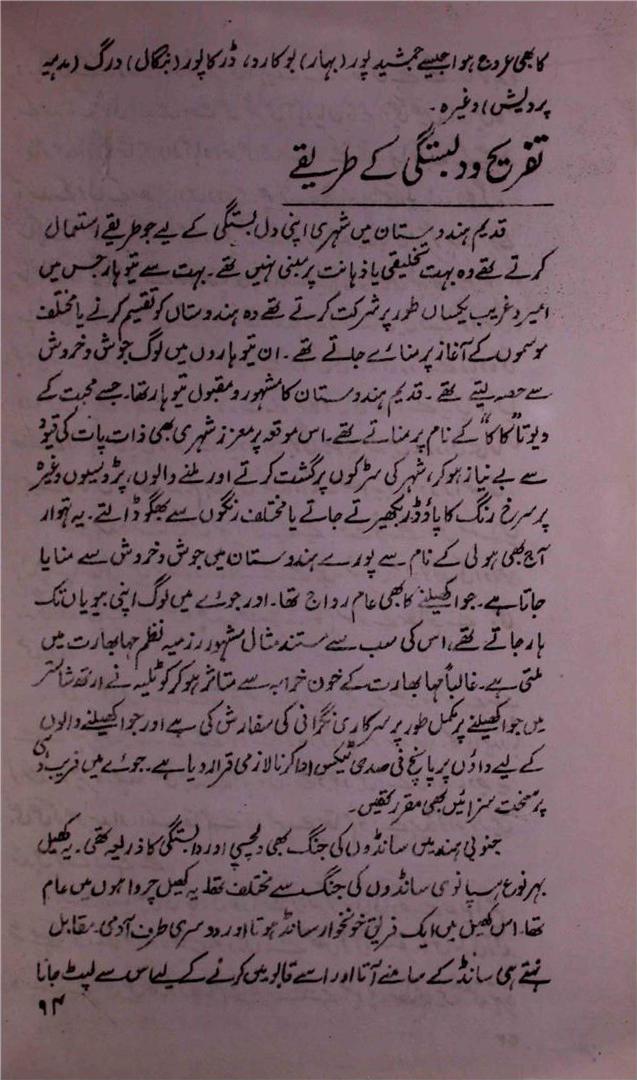 کا بھی عروج ہوا جیسے جمشید پور (بہار) بوکارو، ڈرگاپور (بنگال) درگ (مدہیہ
پردیش) وغیرہ۔
تفریح و دلبستگی کے طریقے
قدیم ہندوستان میں شہری اپنی دل بستگی کے لیے جو طریقے استعمال
کرتے تھے وہ بہت تخلیقی یا ذہانت پر مبنی نہیں تھے۔ بہت سے تیوہار جس میں
امیر و غریب یکساں طور پر شرکت کرتے تھے وہ ہندوستاں کو تقسیم کرنے یا مختلف
موسموں کے آغاز پر منائے جاتے تھے۔ ان تیوہاروں میں لوگ جوش و خروش
سے حصہ لیتے تھے۔ قدیم ہندوستان کا مشہور و مقبول تیوہار تھا۔ جسے محبت کے
دیوتا "کاکا" کے نام پر مناتے تھے۔ اس موقعہ پر معزز شہری بھی ذات پات کی قیود
سے بے نیاز ہوکر، شہر کی سڑکوں پر گشت کرتے اور ملنے والوں، پڑوسیوں وغیرہ
پر سرخ رنگ کا پاؤڈر بکھیرتے جاتے یا مختلف رنگوں سے بھگو ڈالتے۔ یہ تہوار
آج بھی ہولی کے نام سے پورے ہندوستان میں جوش و خروش سے منایا
جاتا ہے۔ جوا کھیلنے کا بھی عام رواج تھا۔ اور جوئے میں لوگ اپنی بیویاں تک
ہار جاتے تھے، اس کی سب سے مستند مثال مشہور رزمیہ نظم مہابھارت میں
ملتی ہے۔ غالباً مہابھارت کے خون خرابہ سے متاثر ہوکر کوٹلیہ نے ارتھ شاستر
میں جوا کھیلنے پر مکمل طور پر سرکاری نگرانی کی سفارش کی ہے اور جوا کھیلنے والوں
کے لیے داؤں پر پانچ فی صدی ٹیکس ادا کرنا لازمی قرار دیا ہے۔ جوئے میں فریب دہی
پر سخت سزائیں بھی مقرر تھیں۔
جنوبی ہند میں سانڈوں کی جنگ بھی دلچسپی اور دلبستگی کا ذریعہ تھی۔ یہ کھیل
بہر نوع ہسپانوی سانڈوں کی جنگ سے مختلف تھا یہ کھیل چرواہوں میں عام
تھا۔ اس کھیل میں ایک فریق خونخوار سانڈ ہوتا اور دوسری طرف آدمی۔ مقابل
نہتے ہی سانڈ کے سامنے آتا اور اسے قابو میں کرنے کے لیے اس سے لپٹ جاتا
۹۴